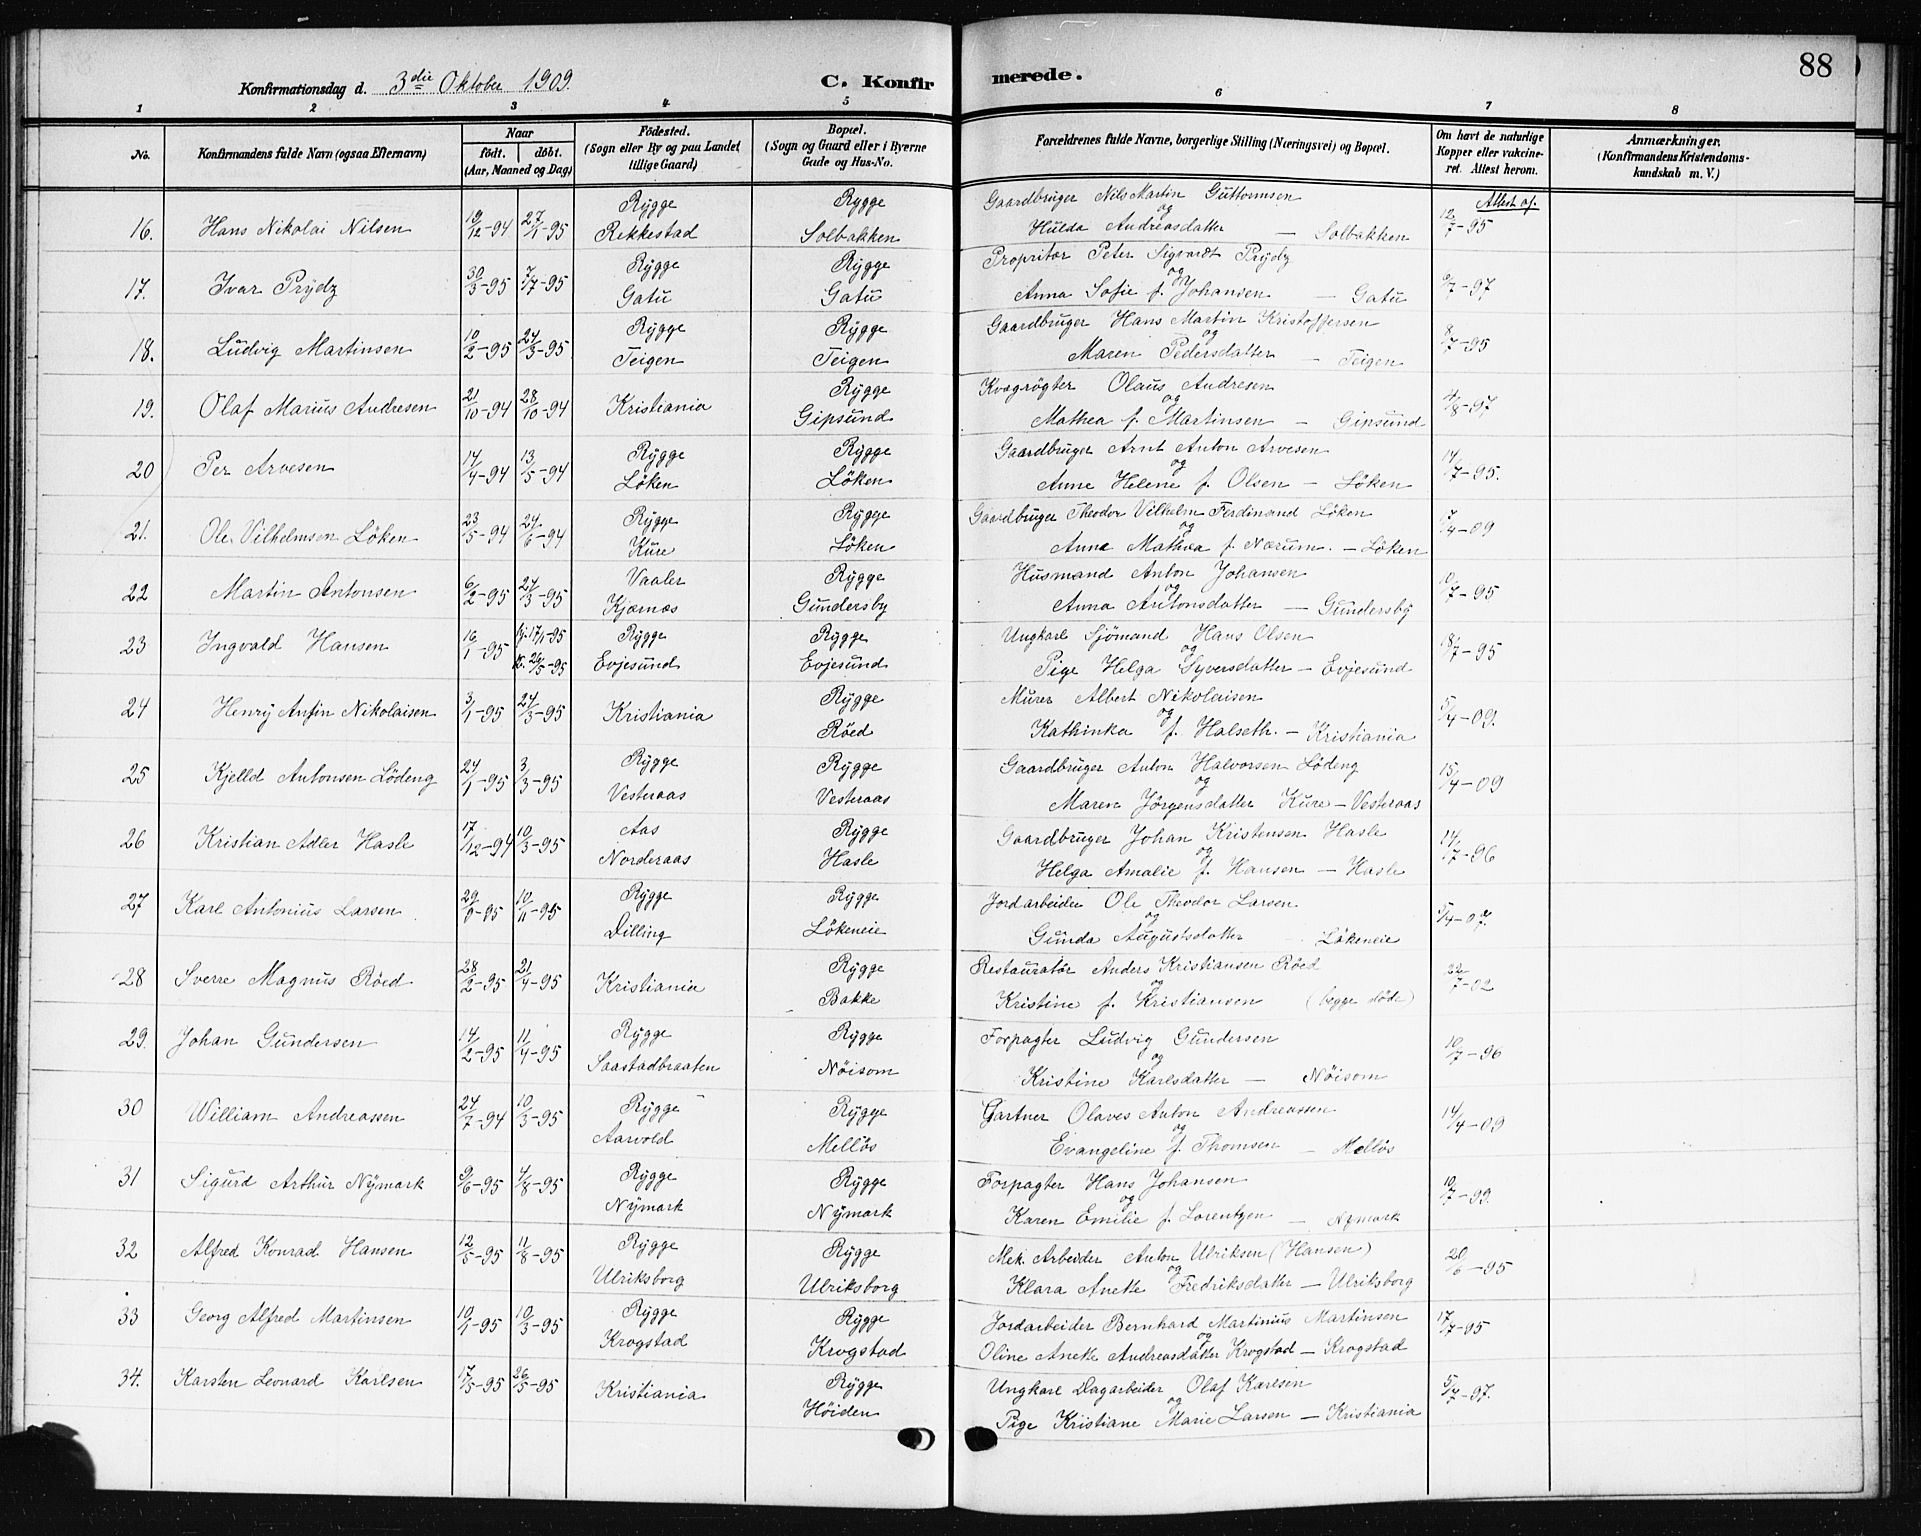 88
Konfirmationsdag d. 3die Oktober 1909. C. Konfirmerede.
1 2 3 4 5 6 7 8
No. Konfirmandens fulde Navn (ogsaa Efternavn) Naar födt. døbt. (Aar, Maaned og Dag) Födested. (Sogn eller By og paa Landet tillige Gaard) Bopæl. (Sogn og Gaard eller i Byerne Gade og Hus-No. Forældrenes fulde Navne, borgerlige Stilling (Næringsvei) og Bopæl. Om havt de naturlige Kopper eller vakcineret. Attest herom. Anmærkninger. (Konfirmandens Kristendomskundskab m. V.)
Attest af.
16. Hans Nikolai Nilsen 19/12-94 27/1-95 Rygge Rekkestad Rygge Solbakken Gaardbruger Nils Martin Guttormsen og Hulda Andreasdatter — Solbakken 12/7-95
17. Ivar Prydz 30/3-95 7/7-95 Rygge Gatu Rygge Gatu Propritær Peter Sigvardt Prydz og Anna Sofie f. Johansen — Gatu 9/7-97
18. Ludvig Martinsen 10/2-95 24/3-95 Rygge Teigen Rygge Teigen Gaardbruger Hans Martin Kristoffersen og Maren Pedersdatter — Teigen 8/7-95
19. Olaf Marius Andresen 21/10-94 28/10-94 Kristiania Rygge Gipsund Kvægrögter Olaus Andresen og Mathea f. Martinsen — Gipsund 4/8-97
20 Per Arvesen 14/4-94 13/5-94 Rygge Löken Rygge Löken Gaardbruger Arnt Anton Arvesen og Anne Helene f. Olsen — Löken 14/7-95.
21. Ole Vilhelmsen Löken 23/5-94 24/6-94 Rygge Kure Rygge Löken Gaardbruger Theodor Vilhelm Ferdinand Löken og Anna Mathea f. Nærum. — Löken 7/4-09
22 Martin Antonsen 6/2-95 24/3-95 Vaaler Kjærnæs Rygge Gundersby Husmand Anton Johansen og Anna Antonsdatter — Gundersby 10/7-95
23 Ingvald Hansen 16/1-95 hj. 17/1-95 k. 26/5-95 Rygge Evjesund Rygge Evjesund Ungkarl Sjömand Hans Olsen og Pige Helga Syversdatter — Evjesund 18/7-95
24 Henry Anfin Nikolaisen 3/1-95 24/3-95 Kristiania Rygge Röed Murer Albert Nikolaisen og Kathinka f. Halseth. — Kristiania 5/4-09.
25 Kjelld Antonsen Lödeng 24/1-95 3/3-95 Rygge Vesteraas Rygge Vesteraas Gaardbruger Anton Halvorsen Löding og Maren Jörgensdatter Kure — Vesteraas 15/4-09
26 Kristian Adler Hasle 17/12-94 10/3-95 Aas Norderaas Rygge Hasle Gaardbruger Johan Kristensen Hasle og Helga Amalie f. Hansen — Hasle 14/7-96
27 Karl Antonius Larsen 29/9-95 10/11-95 Rygge Dilling Rygge Lökeneie Jordarbeider Ole Theodor Larsen og Gunda Augustsdatter — Lökeneie 5/4-07.
28 Sverre Magnus Röed 28/2-95 21/4-95 Kristiania Rygge Bakke Restauratör Anders Kristiansen Röed og Kristine f. Kristiansen (begge döde) 22/7-02
29. Johan Gundersen 14/2-95 11/4-95 Rygge Saastadbraaten Rygge Nöisom Forpagter Ludvig Gundersen og Kristine Karlsdatter — Nöisom 10/7-96
30 William Andreassen 24/7-94 10/3-95 Rygge Aarvold Rygge Mellös Gartner Olaves Anton Andreassen og Evangeline f. Thomsen — Mellös 14/4-09
31 Sigurd Arthur Nymark 9/6-95 4/8-95 Rygge Nymark Rygge Nymark Forpagter Hans Johansen og Karen Emilie f. Lorentzen — Nymark 10/7-99.
32 Alfred Konrad Hansen 12/5-95 11/8-95 Rygge Ulriksborg Rygge Ulriksborg Mek. Arbeider Anton Ulriksen (Hansen) og Klara Anette Fredriksdatter — Ulriksborg 20/6-95
33 Georg Alfred Martinsen 10/1-95 10/3-95 Rygge Krogstad Rygge Krogstad Jordarbeider Bernhard Martinius Martinsen og Oline Anette Andreasdatter Krogstad — Krogstad 17/7-95
34. Karsten Leonard Karlsen 17/5-95 26/5-95 Kristiania Rygge Höiden Ungkarl Dagarbeider Olaf Karlsen og Pige Kristiane Marie Larsen — Kristiania 5/7-97.